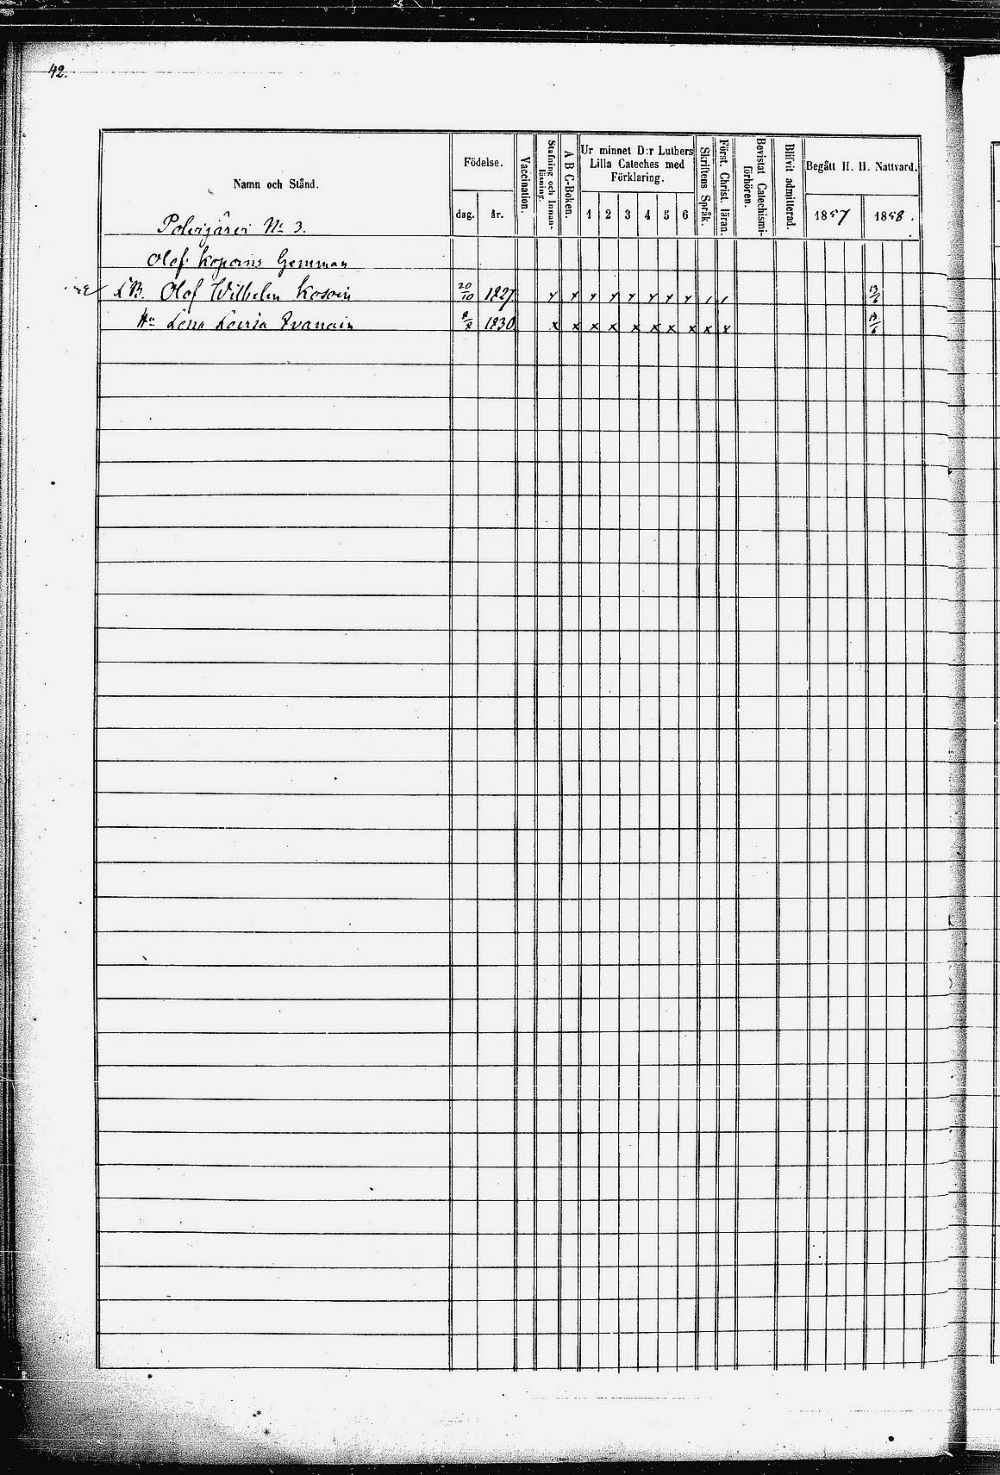 42.
Namn och Stånd.
Födelse.
dag.
år.
Vaccination.
Stafning och Innan-
läsning.
A B C-Boken.
Ur minnet D:r Luthers
Lilla Cateches med
Förklaring.
1 2 3 4 5 6
Skriftens Språk.
Först. Christ. läran.
Bevistat Catechismi-
förhören.
Blifvit admitterad.
Begått H. H. Nattvard.
1857
1858.
Polvijärvi No 3.
Olof
Olof Wilhelm 20/10 1827 x x x x x x x x / /
Hu Lena 1830 x x x x x x x x x x